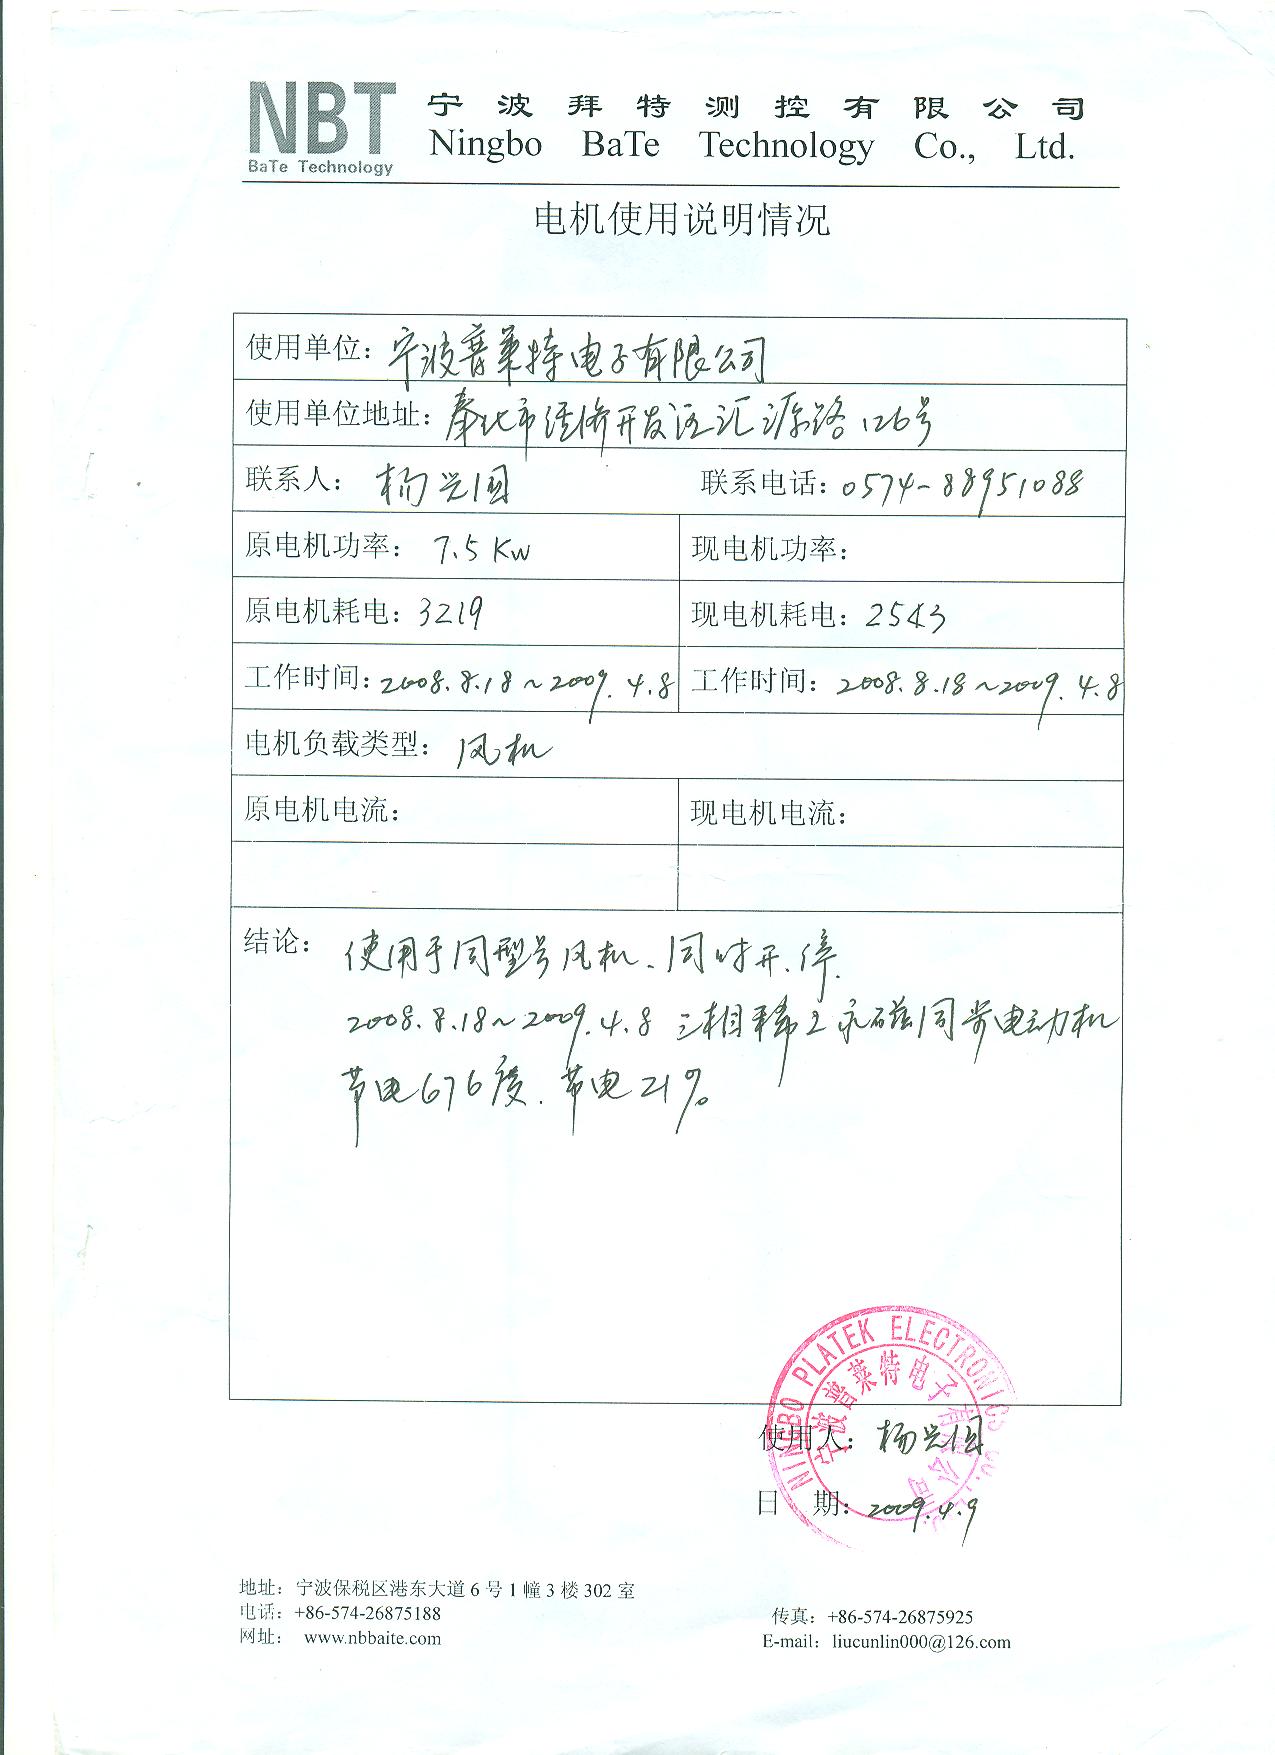 NBT
BaTe Technology
宁波拜特测控有限公司
Ningbo BaTe Technology Co., Ltd.
电机使用说明情况
使用单位：宁波普莱特电子有限公司
使用单位地址：奉化市经济开发区汇源路126号
联系人：杨兴国 联系电话：0574-88951088
原电机功率：7.5 Kw 现电机功率：
原电机耗电：3219 现电机耗电：2543
工作时间：2008.8.18~2009.4.8 工作时间：2008.8.18~2009.4.8
电机负载类型：风机
原电机电流： 现电机电流：
结论：使用于同型号风机、同时开、停.
2008.8.18~2009.4.8 三相稀土永磁同步电动机
节电676度.节电21%。
NINGBO PLATEK ELECTRONICS CO.,
宁波普莱特电子有限公司
使用人：杨兴国
日 期：2009.4.9
地址：宁波保税区港东大道6号1幢3楼302室
电话：+86-574-26875188 传真：+86-574-26875925
网址： www.nbbaite.com E-mail：liucunlin000@126.com